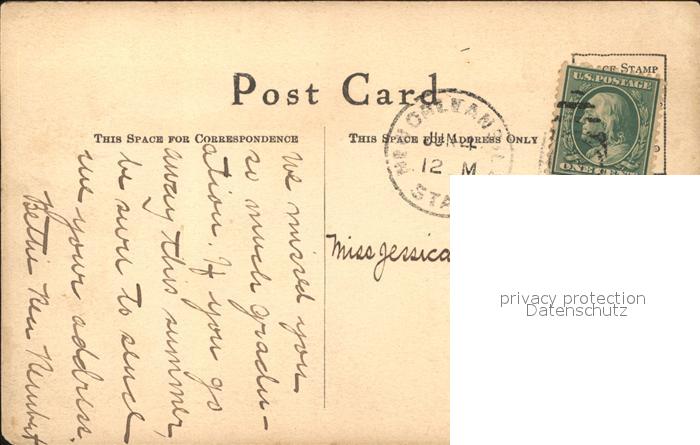 Post Card
THIS SPACE FOR CORRESPONDENCE
THIS SPACE FOR ADDRESS ONLY
CE STAMP
U.S. POSTAGE
ONE CENT
JUN
12 M
STA
Miss Jessica
We missed you
so much gradu-
ation. If you go
away this summer,
be sure to send
me your address.
privacy protection
Datenschutz